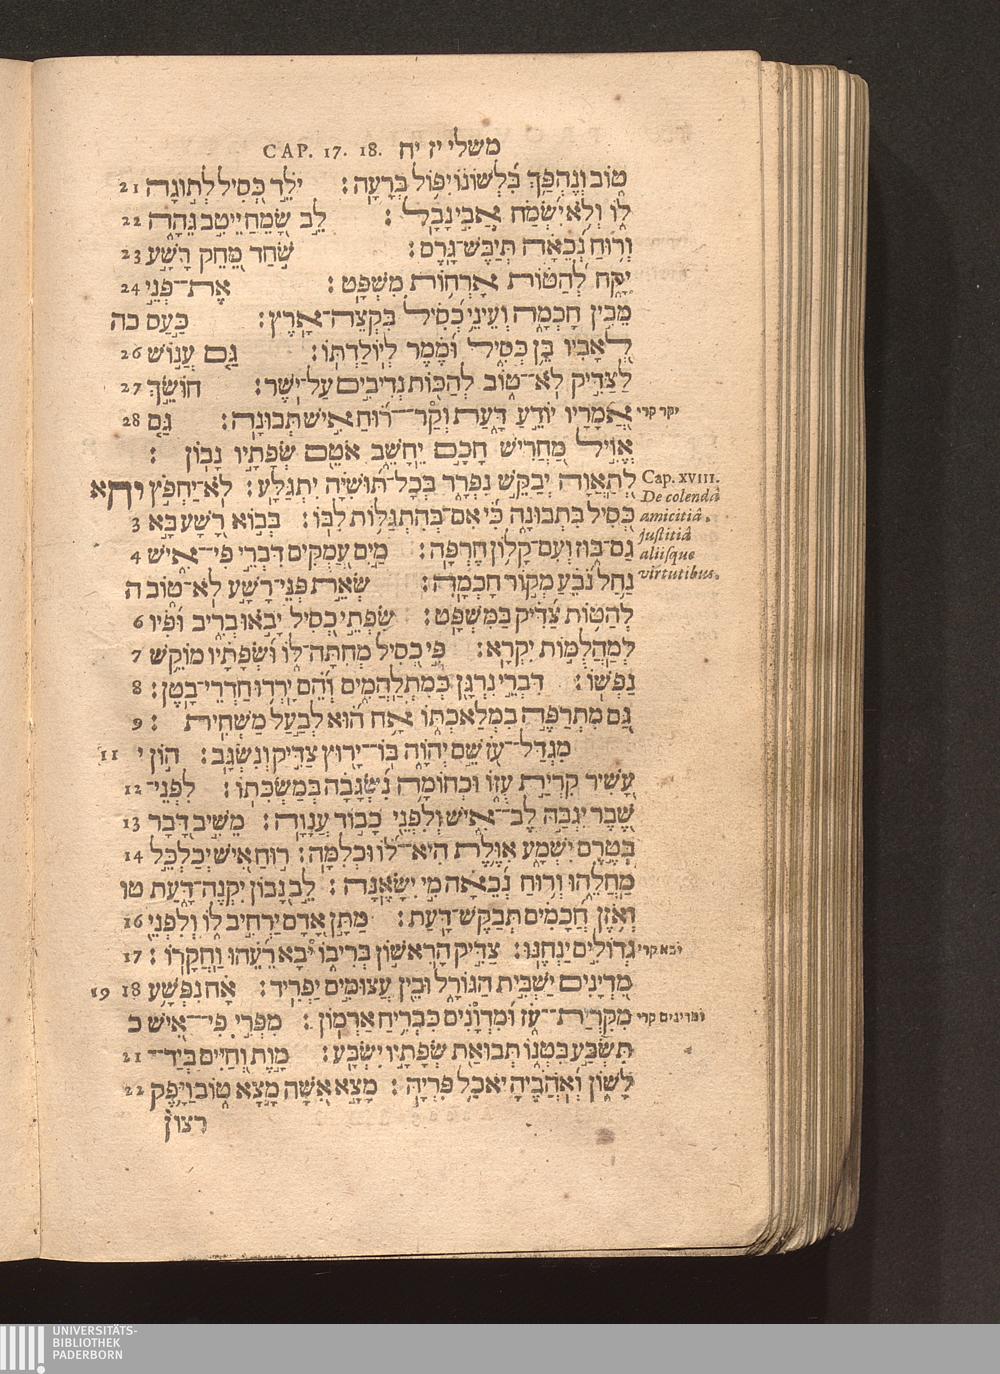 משלי יז יח CAP. 17. 18.
טוֹב וְנֶהְפַּךְ בִּלְשׁוֹנוֹ יִפּוֹל בְּרָעָה׃ יֹלֵד כְּסִיל לְתוּגָה 21
לוֹ וְלֹא יִשְׂמַח אֲבִי נָבָל׃ לֵב שָׂמֵחַ יֵיטִב גֵּהָה 22
וְרוּחַ נְכֵאָה תְּיַבֶּשׁ־גָּרֶם׃ שֹׁחַד מֵחֵק רָשָׁע 23
יִקָּח לְהַטּוֹת אָרְחוֹת מִשְׁפָּט׃ אֶת־פְּנֵי 24
מֵבִין חָכְמָה וְעֵינֵי כְסִיל בִּקְצֵה־אָרֶץ׃ כַּעַס כה
לְאָבִיו בֵּן כְּסִיל וּמֶמֶר לְיוֹלַדְתּוֹ׃ גַּם עֲנוֹשׁ 26
לַצַּדִּיק לֹא־טוֹב לְהַכּוֹת נְדִיבִים עַל־יֹשֶׁר׃ חוֹשֵׂךְ 27
יקר קרי
אֲמָרָיו יוֹדֵעַ דָּעַת וְקַר־רוּחַ אִישׁ תְּבוּנָה׃ גַּם 28
אֱוִיל מַחֲרִישׁ חָכָם יֵחָשֵׁב אֹטֵם שְׂפָתָיו נָבוֹן׃
Cap. XVIII.
לְתַאֲוָה יְבַקֵּשׁ נִפְרָד בְּכָל־תּוּשִׁיָּה יִתְגַּלָּע׃ לֹא־יַחְפֹּץ יח א
De colendâ
כְּסִיל בִּתְבוּנָה כִּי אִם־בְּהִתְגַּלּוֹת לִבּוֹ׃ בְּבוֹא רָשָׁע בָּא 3
amicitiâ,
justitiâ
גַם־בּוּז וְעִם־קָלוֹן חֶרְפָּה׃ מַיִם עֲמֻקִּים דִּבְרֵי פִי־אִישׁ 4
aliisque
virtutibus.
נַחַל נֹבֵעַ מְקוֹר חָכְמָה׃ שְׂאֵת פְּנֵי־רָשָׁע לֹא־טוֹב ה
לְהַטּוֹת צַדִּיק בַּמִּשְׁפָּט׃ שִׂפְתֵי כְסִיל יָבֹאוּ בְרִיב וּפִיו 6
לְמַהֲלֻמוֹת יִקְרָא׃ פִּי כְסִיל מְחִתָּה־לוֹ וּשְׂפָתָיו מוֹקֵשׁ 7
נַפְשׁוֹ׃ דִּבְרֵי נִרְגָּן כְּמִתְלַהֲמִים וְהֵם יָרְדוּ חַדְרֵי־בָטֶן׃ 8
גַּם מִתְרַפֶּה בִמְלַאכְתּוֹ אָח הוּא לְבַעַל מַשְׁחִית׃ 9
מִגְדַּל־עֹז שֵׁם יְהוָה בּוֹ־יָרוּץ צַדִּיק וְנִשְׂגָּב׃ הוֹן י 11
עָשִׁיר קִרְיַת עֻזּוֹ וּכְחוֹמָה נִשְׂגָּבָה בְּמַשְׂכִּתוֹ׃ לִפְנֵי־ 12
שֶׁבֶר יִגְבַּהּ לֵב־אִישׁ וְלִפְנֵי כָבוֹד עֲנָוָה׃ מֵשִׁיב דָּבָר 13
בְּטֶרֶם יִשְׁמָע אִוֶּלֶת הִיא־לוֹ וּכְלִמָּה׃ רוּחַ אִישׁ יְכַלְכֵּל 14
מַחֲלֵהוּ וְרוּחַ נְכֵאָה מִי יִשָּׂאֶנָּה׃ לֵב נָבוֹן יִקְנֶה־דָּעַת טו
וְאֹזֶן חֲכָמִים תְּבַקֶּשׁ־דָּעַת׃ מַתָּן אָדָם יַרְחִיב לוֹ וְלִפְנֵי 16
ובא קרי
גְדוֹלִים יַנְחֶנּוּ׃ צַדִּיק הָרִאשׁוֹן בְּרִיבוֹ יָבֹא רֵעֵהוּ וַחֲקָרוֹ׃ 17
מִדְיָנִים יַשְׁבִּית הַגּוֹרָל וּבֵין עֲצוּמִים יַפְרִיד׃ אָח נִפְשָׁע 18 19
ומדינים קרי
מִקִּרְיַת־עֹז וּמִדְוָנִים כִּבְרִיחַ אַרְמוֹן׃ מִפְּרִי פִי־אִישׁ כ
תִּשְׂבַּע בִּטְנוֹ תְּבוּאַת שְׂפָתָיו יִשְׂבָּע׃ מָוֶת וְחַיִּים בְּיַד־ 21
לָשׁוֹן וְאֹהֲבֶיהָ יֹאכַל פִּרְיָהּ׃ מָצָא אִשָּׁה מָצָא טוֹב וַיָּפֶק 22
רצון
UNIVERSITÄTS-
BIBLIOTHEK
PADERBORN